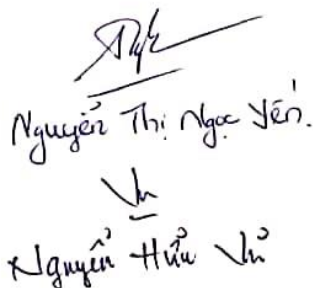 Nguyễn Thị Ngọc Yến.
Vu
Nguyễn Hữu Vũ